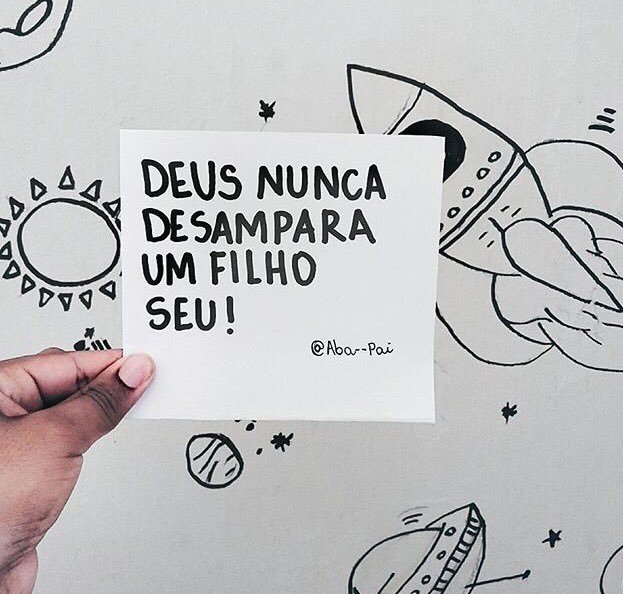 DEUS NUNCA
DESAMPARA
UM FILHO
SEU!
@Aba--Pai